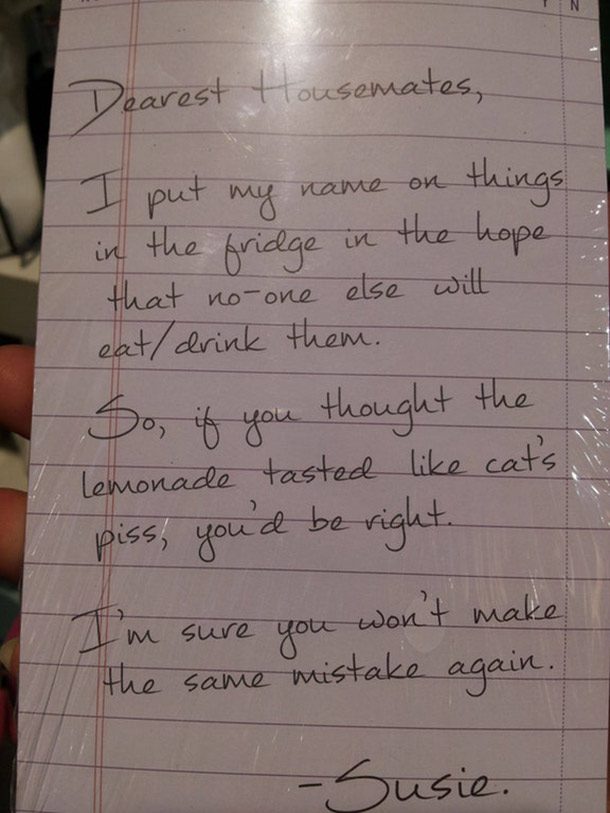 N
Dearest Housemates,
I put my name on things
in the fridge in the hope
that no-one else will
eat/drink them.
So, if you thought the
lemonade tasted like cat's
piss, you'd be right.
I'm sure you won't make
the same mistake again.
-Susie.